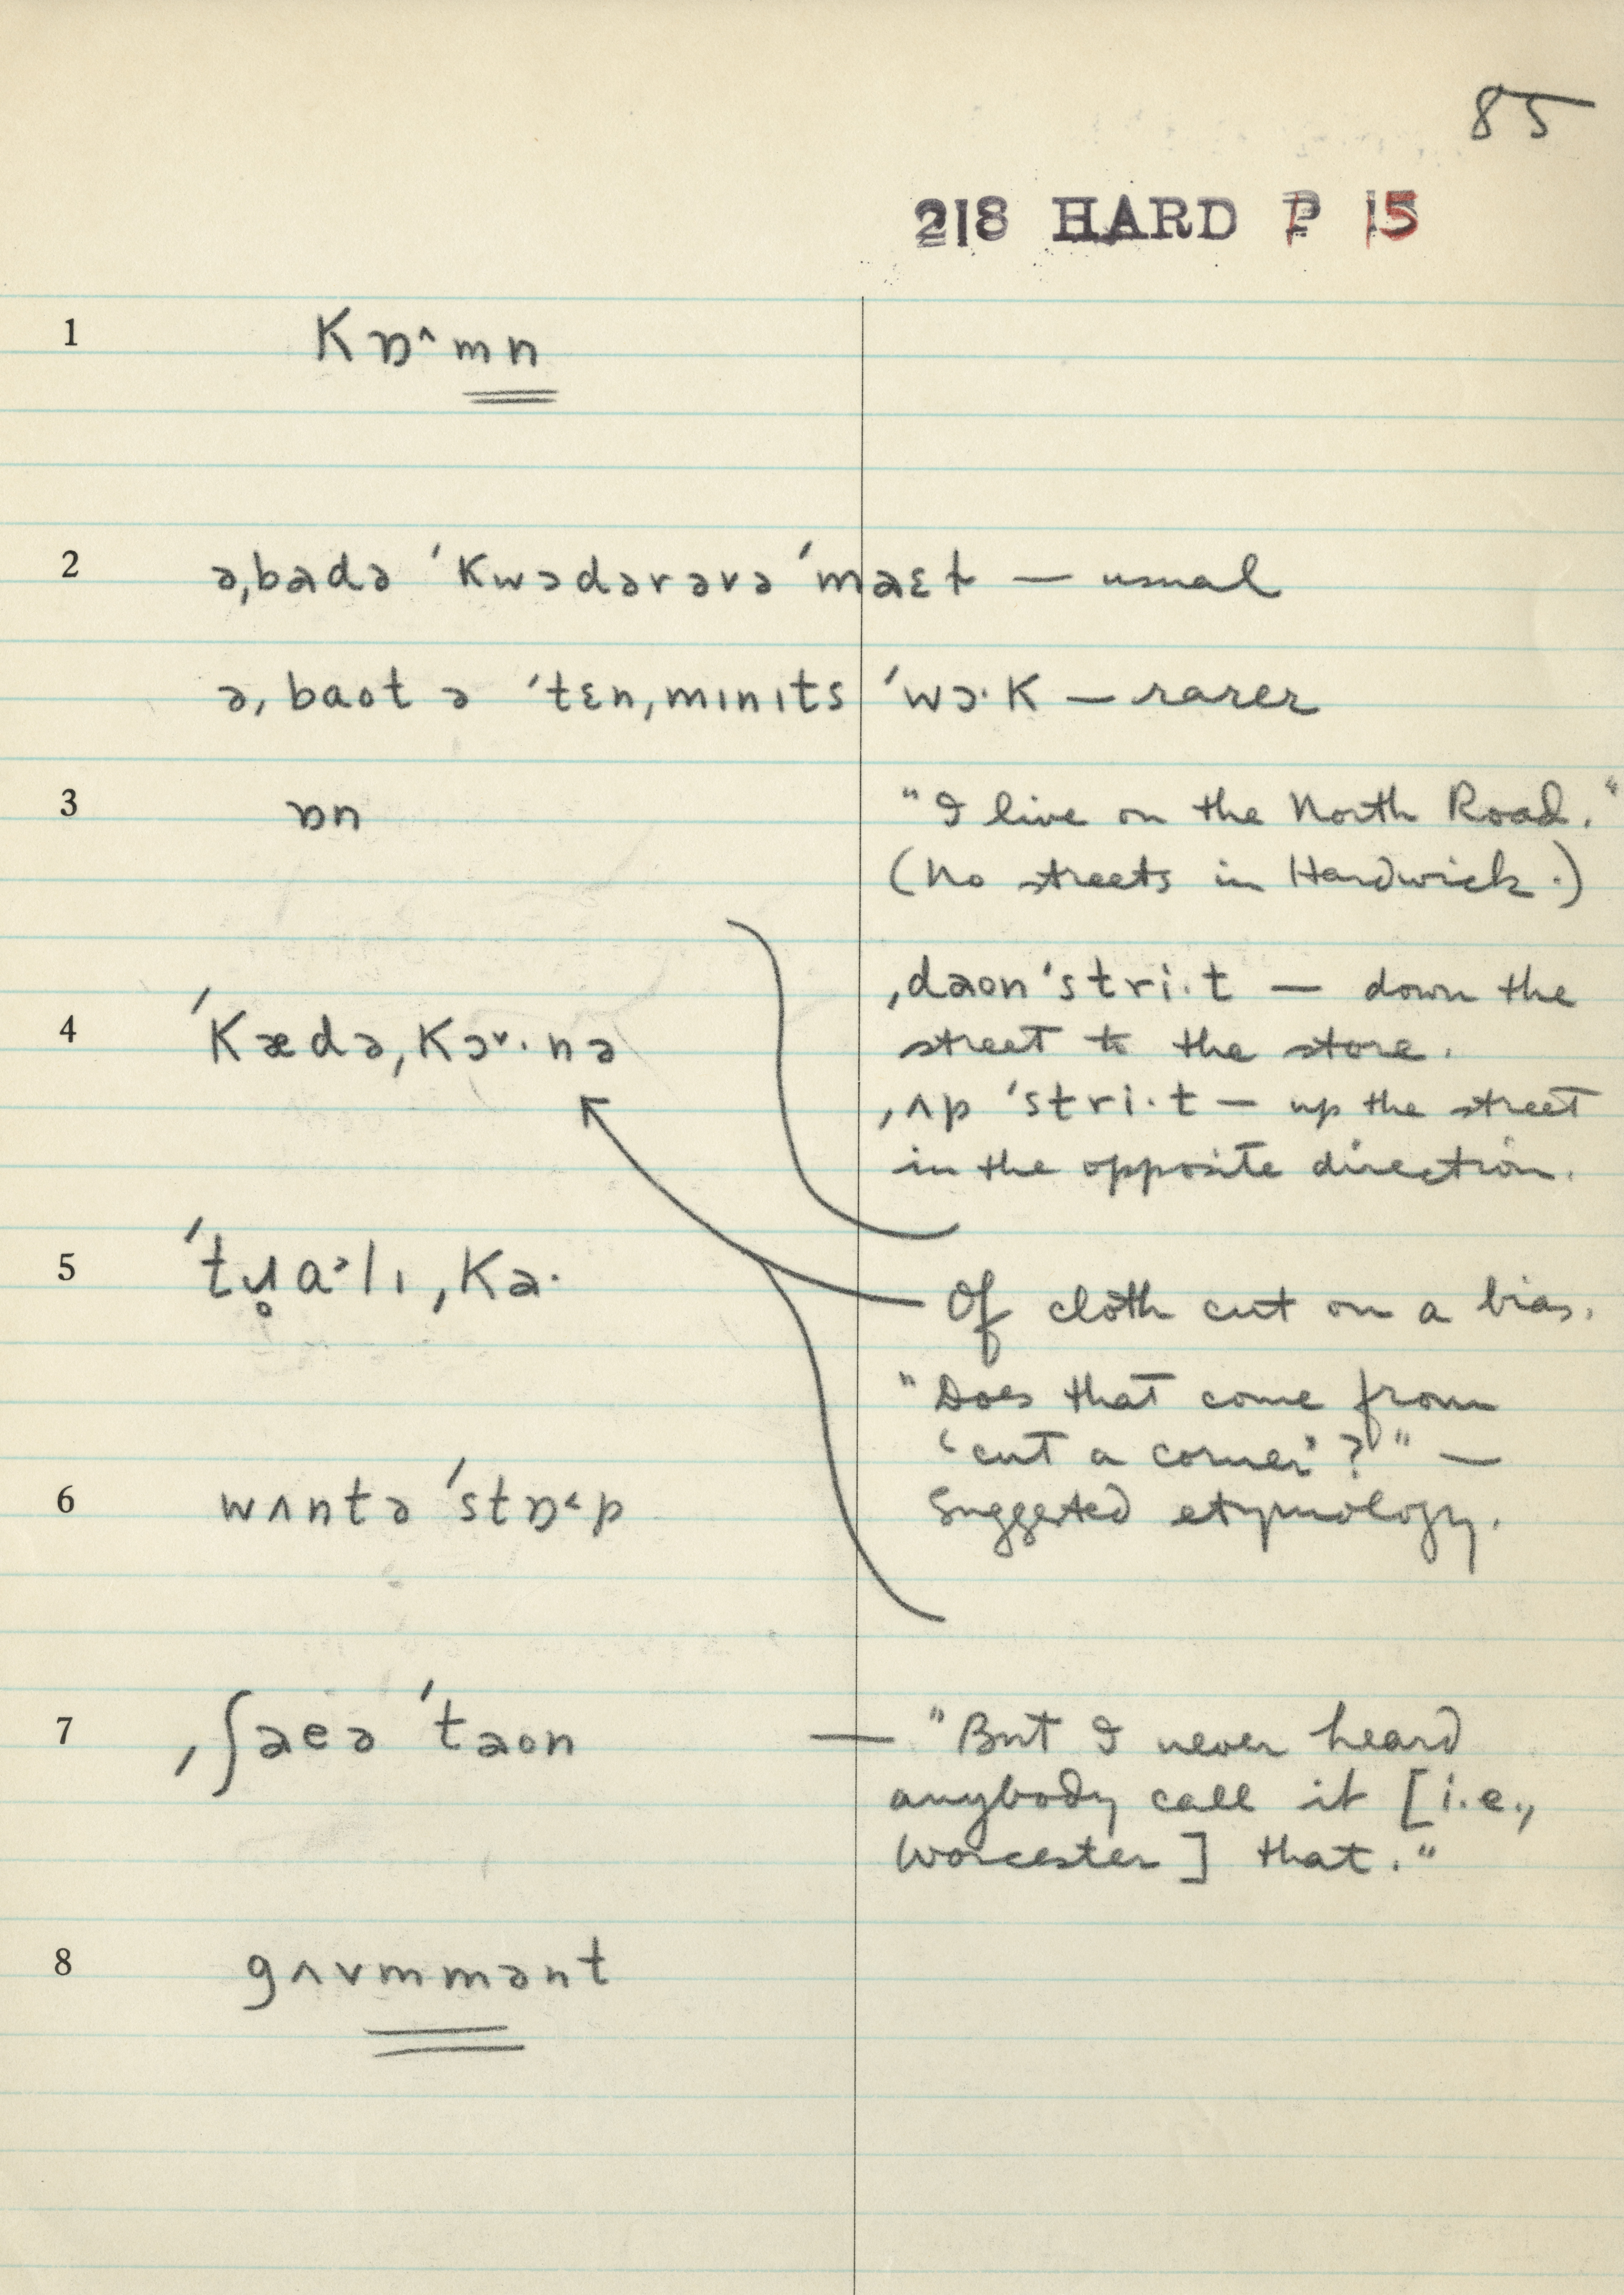 85
218 HARD P 15
1 kɒ˄mn
2 əˌbadə ˈkwɔdərəvəˈmaɛt — usual
əˌbaot ə ˈtɛnˌmɪnɪts ˈwɔ·k — rarer
3 ɒn "I live on the North Road."
(No streets in Hardwick.)
ˌdaonˈstri·t — down the
4 ˈkædəˌkɔ˅·nə street to the store.
ˌʌp ˈstri·t — up the street
in the opposite direction.
5 ˈtɹ̥ɑ˃lɪˌka· Of cloth cut on a bias.
"Does that come from
'cut a corner'?" —
6 wʌntə ˈstɒ˂p Suggested etymology.
7 ˌʃaeə ˈtaon — "But I never heard
anybody call it [i.e.,
Worcester] that."
8 gʌvmmənt